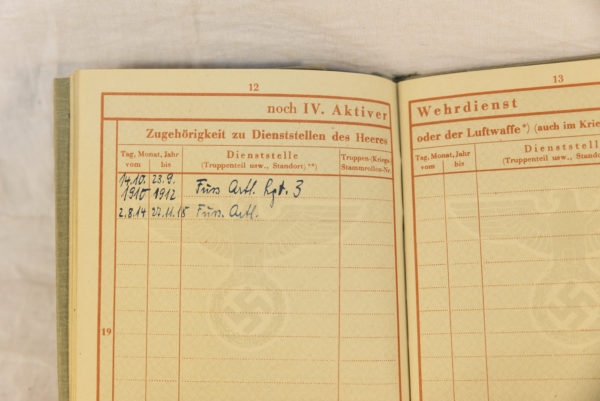 12
noch IV. Aktiver
Zugehörigkeit zu Dienststellen des Heeres
Tag, Monat, Jahr
vom bis
Dienststelle
(Truppenteil usw., Standort) **)
Truppen-(Kriegs-)
Stammrollen-Nr.
14.10. 23.9.
1910 1912 Fuss Artl. Rgt. 3
2.8.14 27.11.18 Fuss. Artl.
19
13
Wehrdienst
oder der Luftwaffe*) (auch im Krie
Tag, Monat, Jahr
vom bis
Dienststell
(Truppenteil usw., Stando